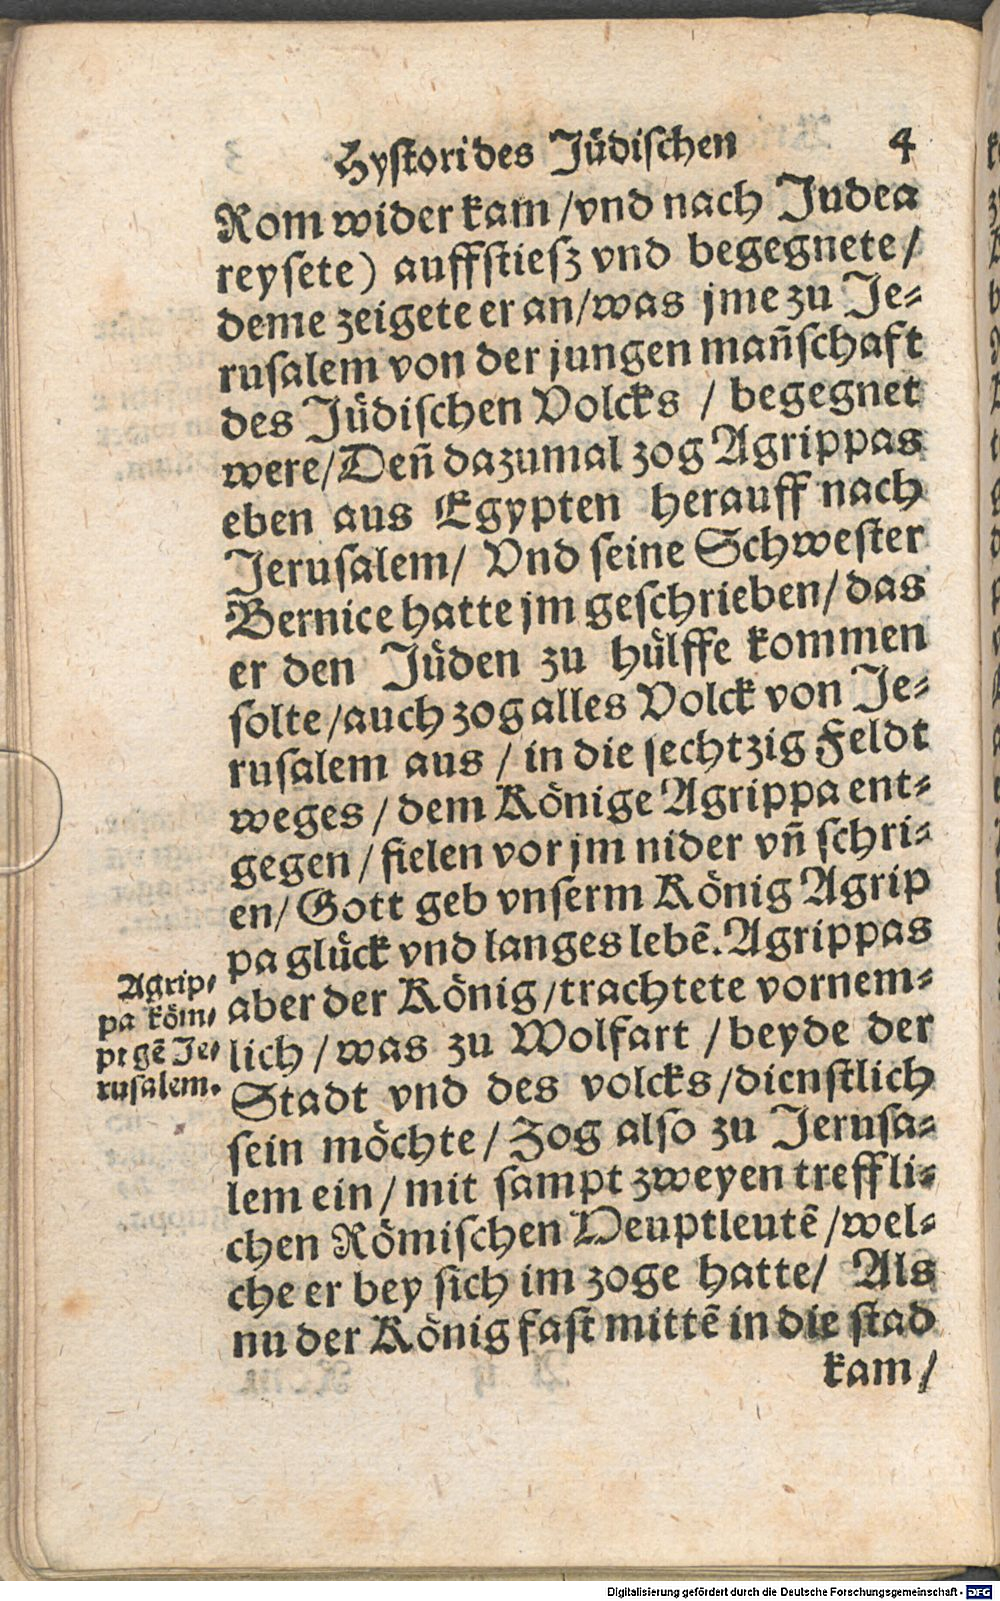 Hystori des Jüdischen 4
Rom wider kam /vnd nach Judea
reysete) auffstiesz vnd begegnete/
deme zeigete er an/was jme zu Je-
rusalem von der jungen mañschaft
des Jüdischen Volcks / begegnet
were/Deñ dazumal zog Agrippas
eben aus Egypten herauff nach
Jerusalem/ Vnd seine Schwester
Bernice hatte jm geschrieben/ das
er den Jüden zu hülffe kommen
solte/auch zog alles Volck von Je-
rusalem aus / in die sechtzig Feldt
weges / dem Könige Agrippa ent-
gegen / fielen vor jm nider vñ schri-
en/ Gott geb vnserm König Agrip
pa glück vnd langes lebẽ. Agrippas
aber der König/trachtete vornem-
lich / was zu Wolfart / beyde der
Stadt vnd des volcks/dienstlich
sein möchte/ Zog also zu Jerusa-
lem ein/ mit sampt zweyen treffli-
chen Römischen Heuptleutẽ /wel-
che er bey sich im zoge hatte/ Als
nu der König fast mittẽ in die stad
kam/
Agrip-
pa köm-
pt gẽ Je-
rusalem.
Digitalisierung gefördert durch die Deutsche Forschungsgemeinschaft - DFG